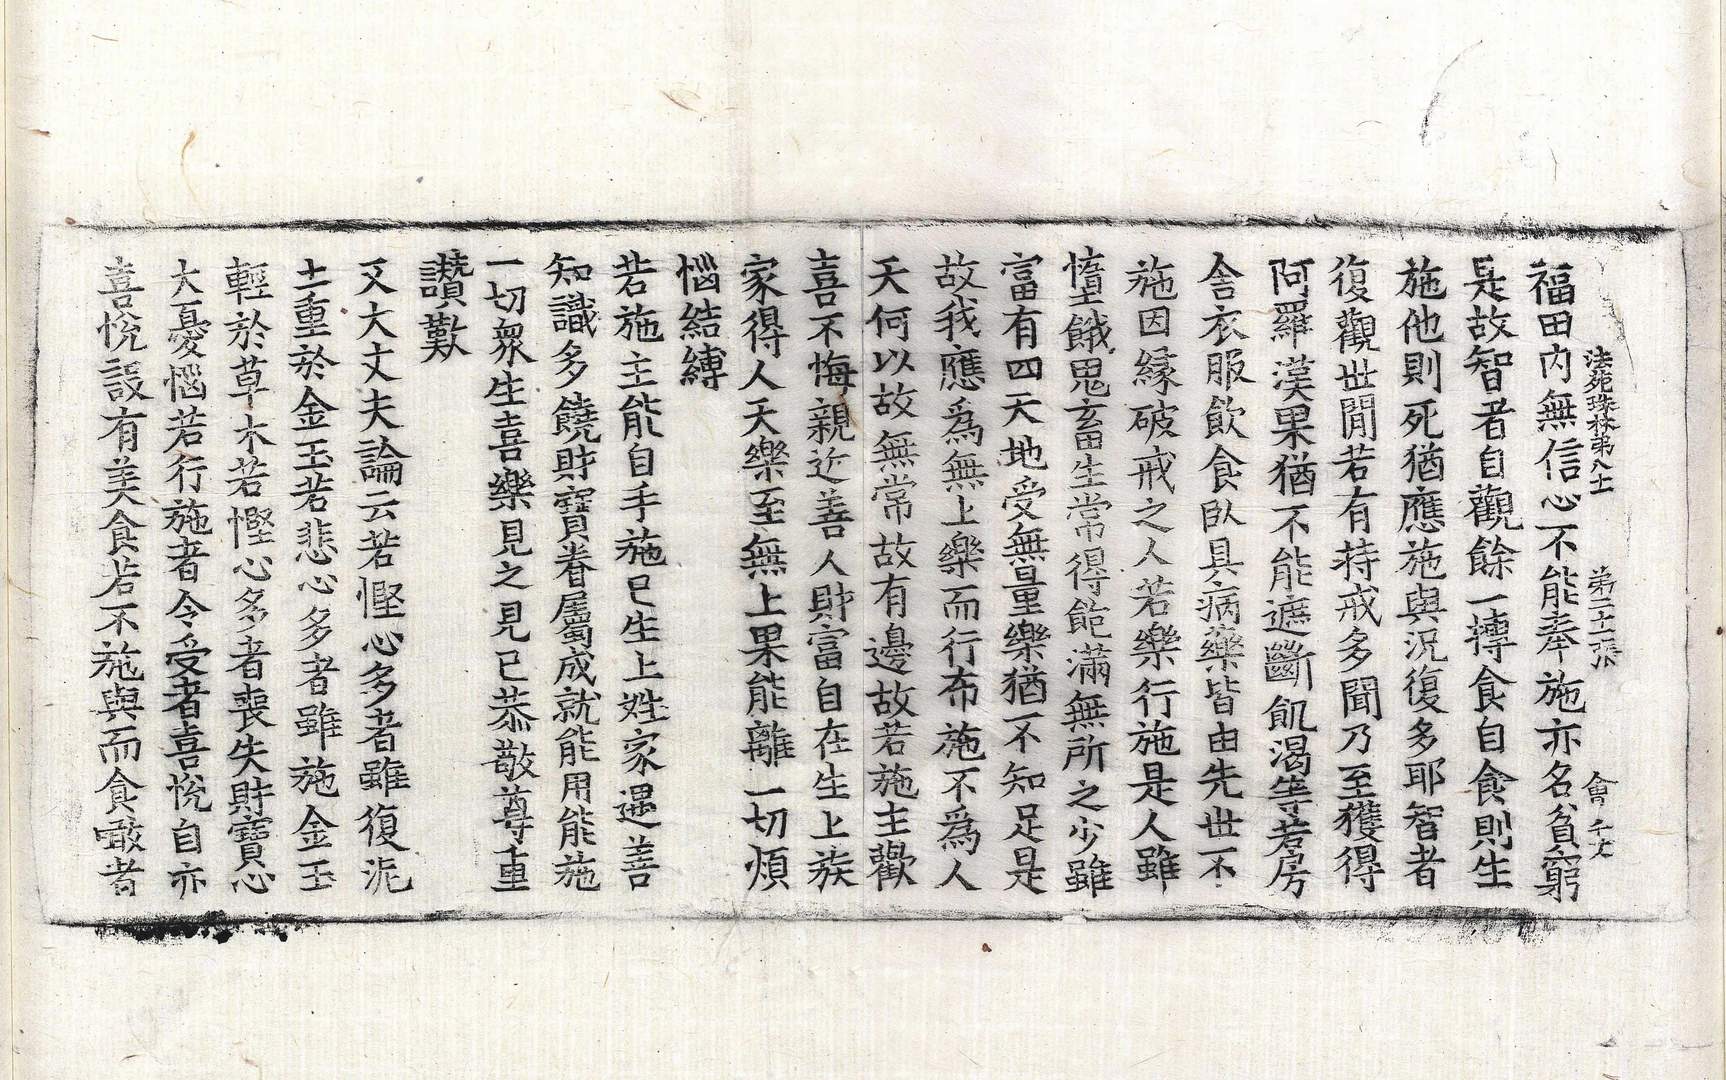 法苑珠林第八十 第二十一張 會 千文
福田內無信心不能奉施亦名貧窮
是故智者自觀餘一摶食自食則生
施他則死猶應施與況復多耶智者
復觀世閒若有持戒多聞乃至獲得
阿羅漢果猶不能遮斷飢渴等若房
舍衣服飲食臥具病藥皆由先世不
施因緣破戒之人若樂行施是人雖
墮餓鬼畜生常得飽滿無所之少雖
富有四天地受無量樂猶不知足是
故我應爲無上樂而行布施不爲人
天何以故無常故有邊故若施主歡
喜不悔親近善人財富自在生上族
家得人天樂至無上果能離一切煩
惱結縛
若施主能自手施已生上姓家遇善
知識多饒財寶眷屬成就能用能施
一切衆生喜樂見之見已恭敬尊重
讚歎
又大丈夫論云若慳心多者雖復泥
土重於金玉若悲心多者雖施金玉
輕於草木若慳心多者喪失財寶心
大憂惱若行施者令受者喜悅自亦
喜悅設有美食若不施與而食噉者